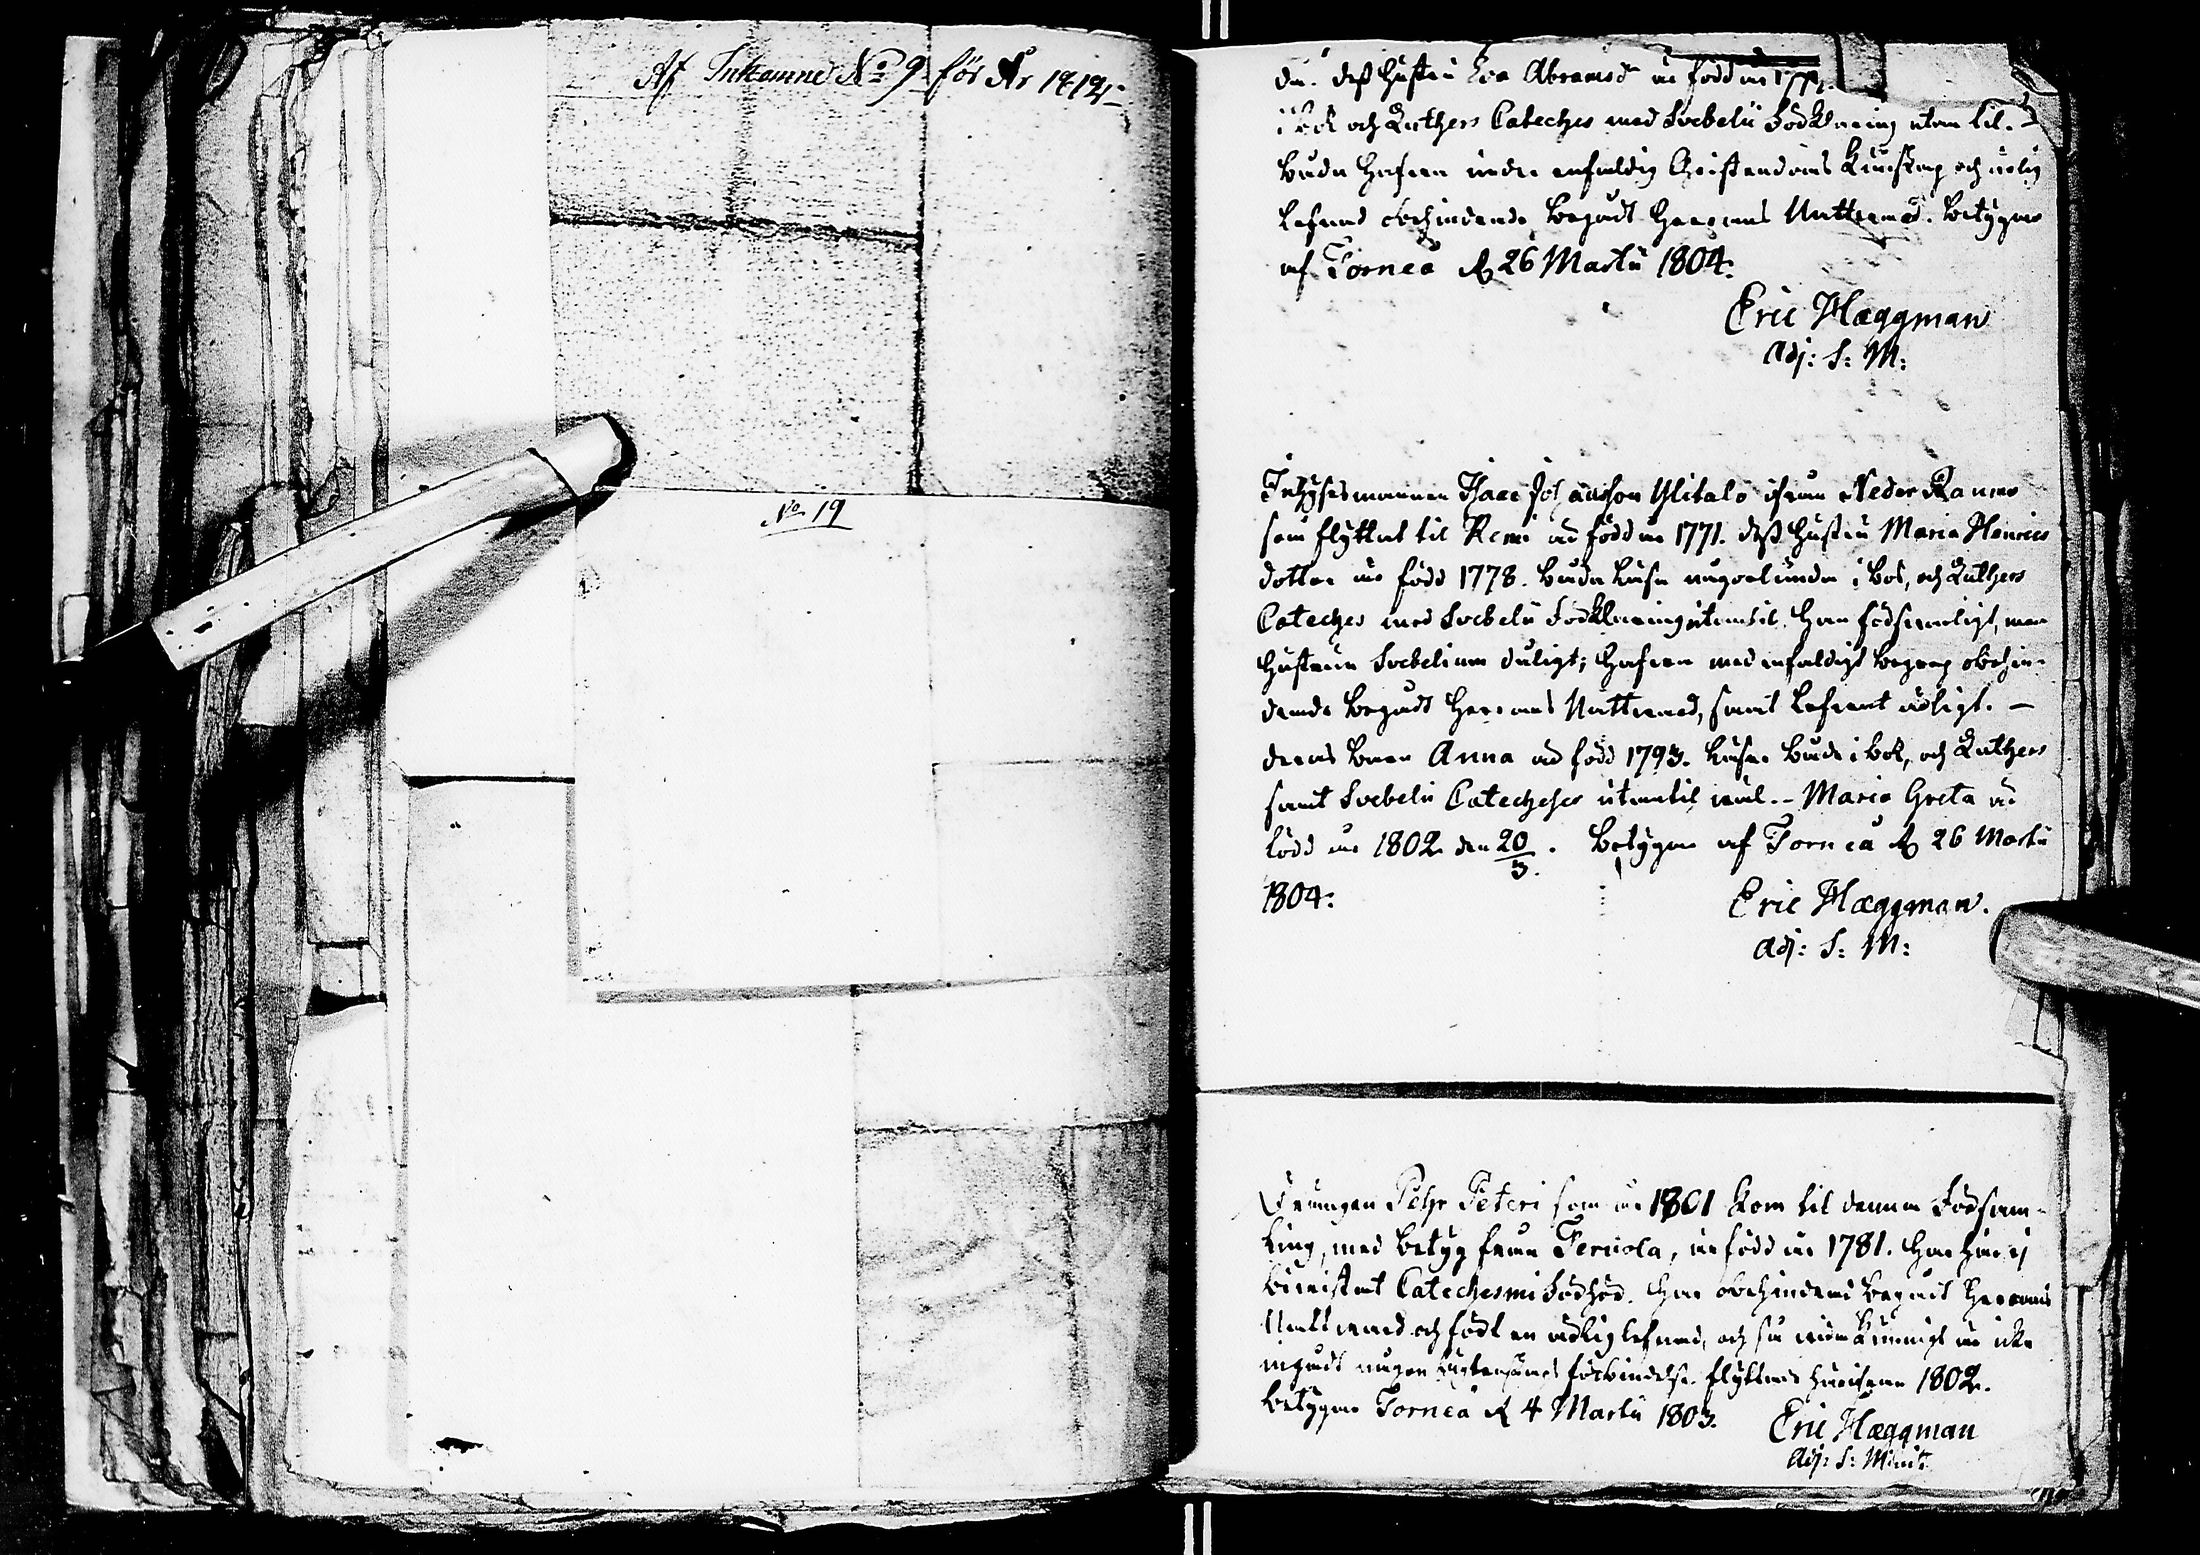 Af Inkomne No 9 för År 1812
No 19
da. dess hustru Eva Abramsdr är född år 177
i bok och Luthers Cateches med Svebelii Förklaring utan til.
båda hafva under enfaldig Christendoms Kunskap och ärlig
lefnad obehindrade begådt Herrans Nattvard. betygar
af Torneå d 26 Martii 1804.
Eric Hæggman
Adj: S: M:
Inhysesmannen Isaac Johansson Ylitalo ifrån Neder
som flyttat til Kemi är född år 1771. dess hustru Maria Henrics
dotter är född 1778. båda läsa någorlunda i bok, och Luthers
Cateches med Svebelii Förklaring utantil. han försvarligt, men
hustrun Svebelium duligt; hafva med enfaldigt begrep obehin-
drade begådt Herrans Nattvard, samt lefvat ärligt. —
deras barn Anna är född 1793. läser både i bok, och Luthers
samt Svebelii Catecheser utantil väl. - Maria Greta är
född år 1802 den 20/3. Betygar af Torneå d 26 Martii
1804.
Eric Hæggman.
Adj: S: M:
Drängen Pehr Peteri som år 1801 kom til denna Försam-
ling, med betyg från Tervola, är född år 1781. han har ej
bevistat Catechesmi Förhör. har obehindrad begådt Herrans
Nattvard och fört en ärlig lefnad, och så vida kunnigt är icke
ingådt någon äktenskaps förbindelse. flyttade härifrån 1802.
betygar Torneå d 4 Martii 1803.
Eric Hæggman
Adj: S: Minist.